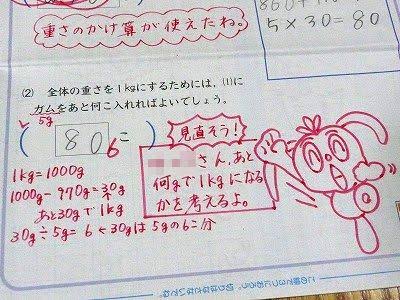 重さのかけ算が使えたね。
5×30=80
(2) 全体の重さを1kgにするためには,(1)に
ガムをあと何こ入れればよいでしょう。
5g
( 80 6こ )
見直そう!
さん,あと
何gで1kgになる
かを考えるよ。
1kg=1000g
1000g-970g=30g
あと30gで1kg
30g÷5g=6←30gは5gの6こ分